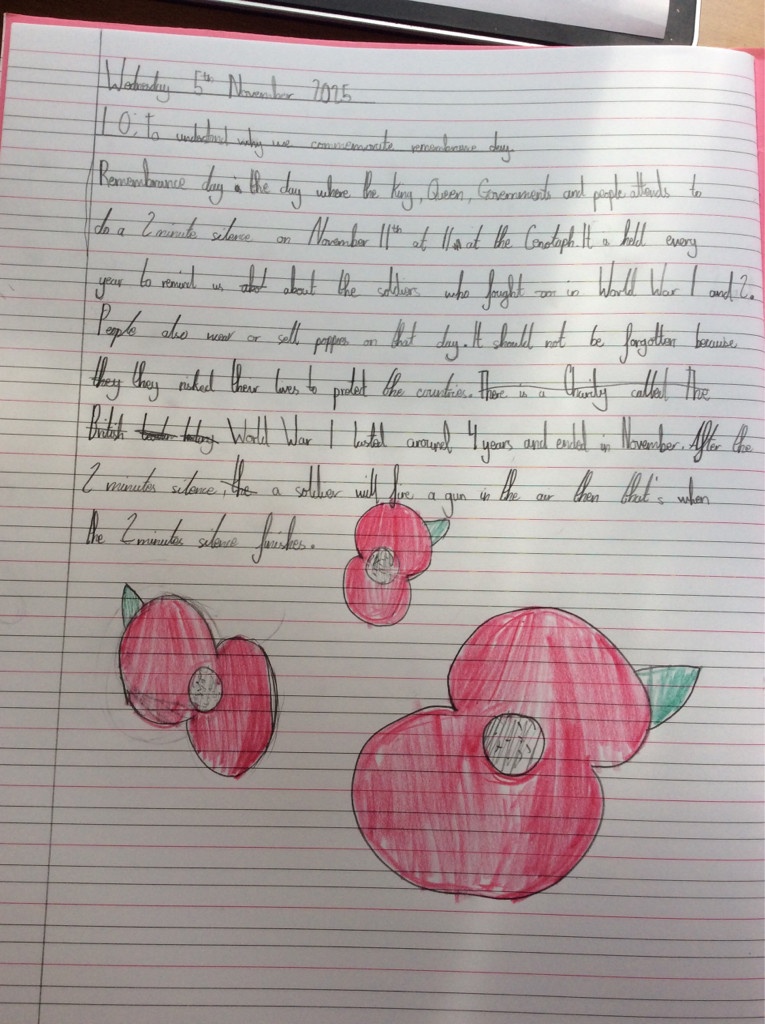 Wednesday 5th November 2025
LO: to understand why we commemorate remembrance day
Remembrance day is the day where the King, Queen, Governments and people attends to
do a 2 minute silence on November 11th at 11 at the Cenotaph. It is held every
year to remind us about the soldiers who fought in World War 1 and 2.
People also wear or sell poppies on that day. It should not be forgotten because
they they risked there lives to protect the countries. There is a Charity called The
British World War 1 lasted around 4 years and ended in November. After the
2 minutes silence, the a soldier will fire a gun in the air then that's when
the 2 minutes silence finishes.